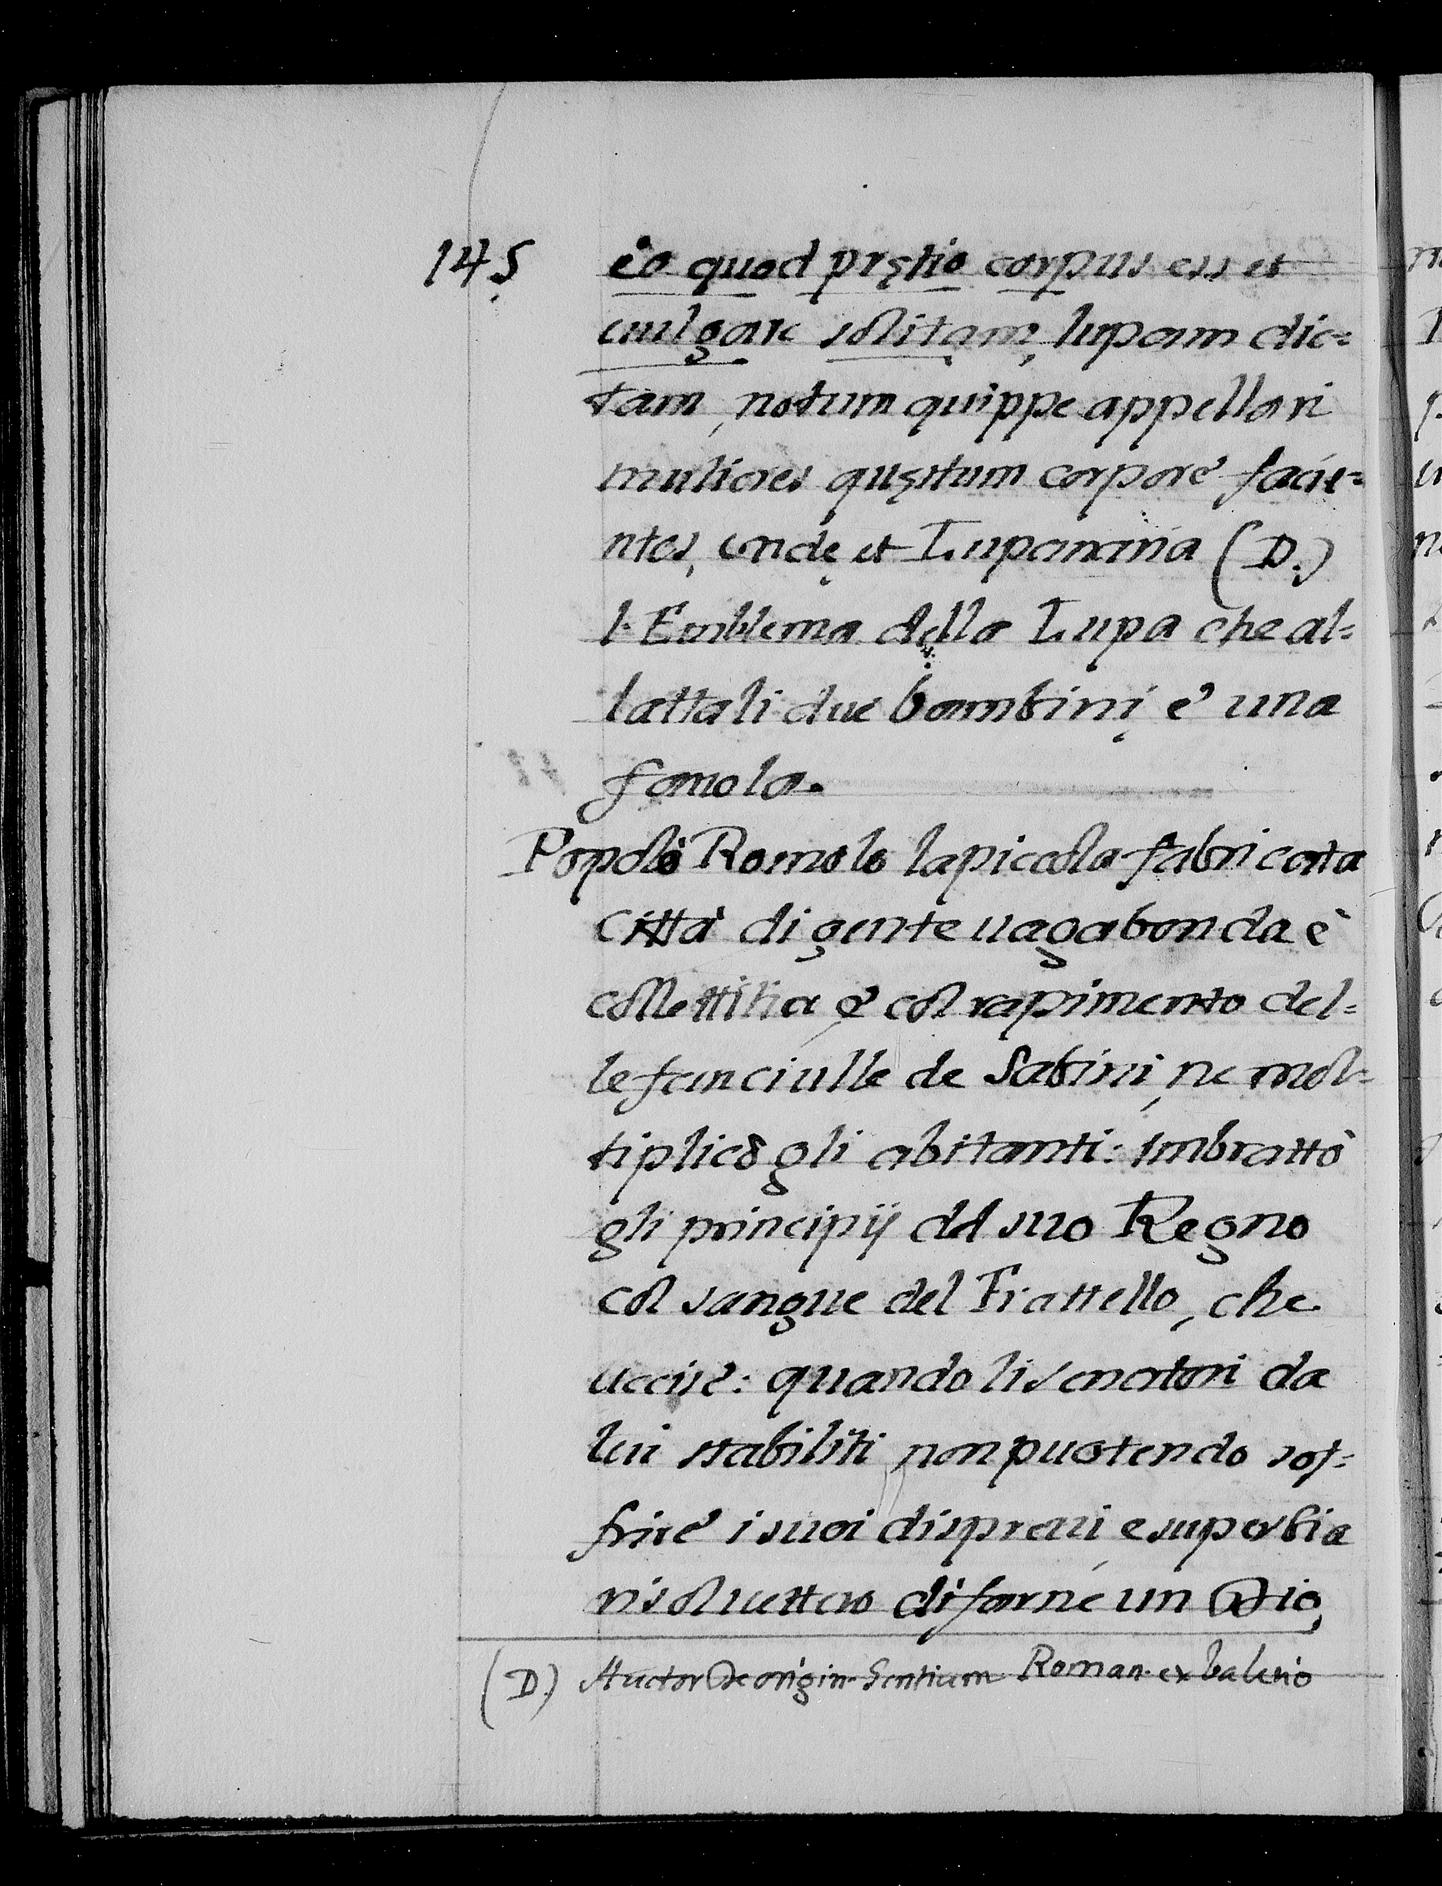 145
eo quod prętio corpus esset
uulgare solitam, lupam dic=
tam, notum quippe appellari
mulieres quęstum corpore facie=
ntes, undę et Lupanaria (D.)
l'Emblema della Lupa che al=
latta li due bambini e' una
fauola.
Popolò Romolo la piccola fabricata
Città di gente uagabonda è
collettitia e col rapimento del=
le fanciulle de Sabini, ne mol=
tiplicò gli abitanti: Imbrattò
gli principij del suo Regno
col sangue del Frattello, che
uccise: quando li senatori da
lui stabiliti non puotendo sof=
frire i suoi disprezzi e superbia
risoluettero di farne un Dio,
(D.) Auctor De origin. Gentium Roman. ex Valerio